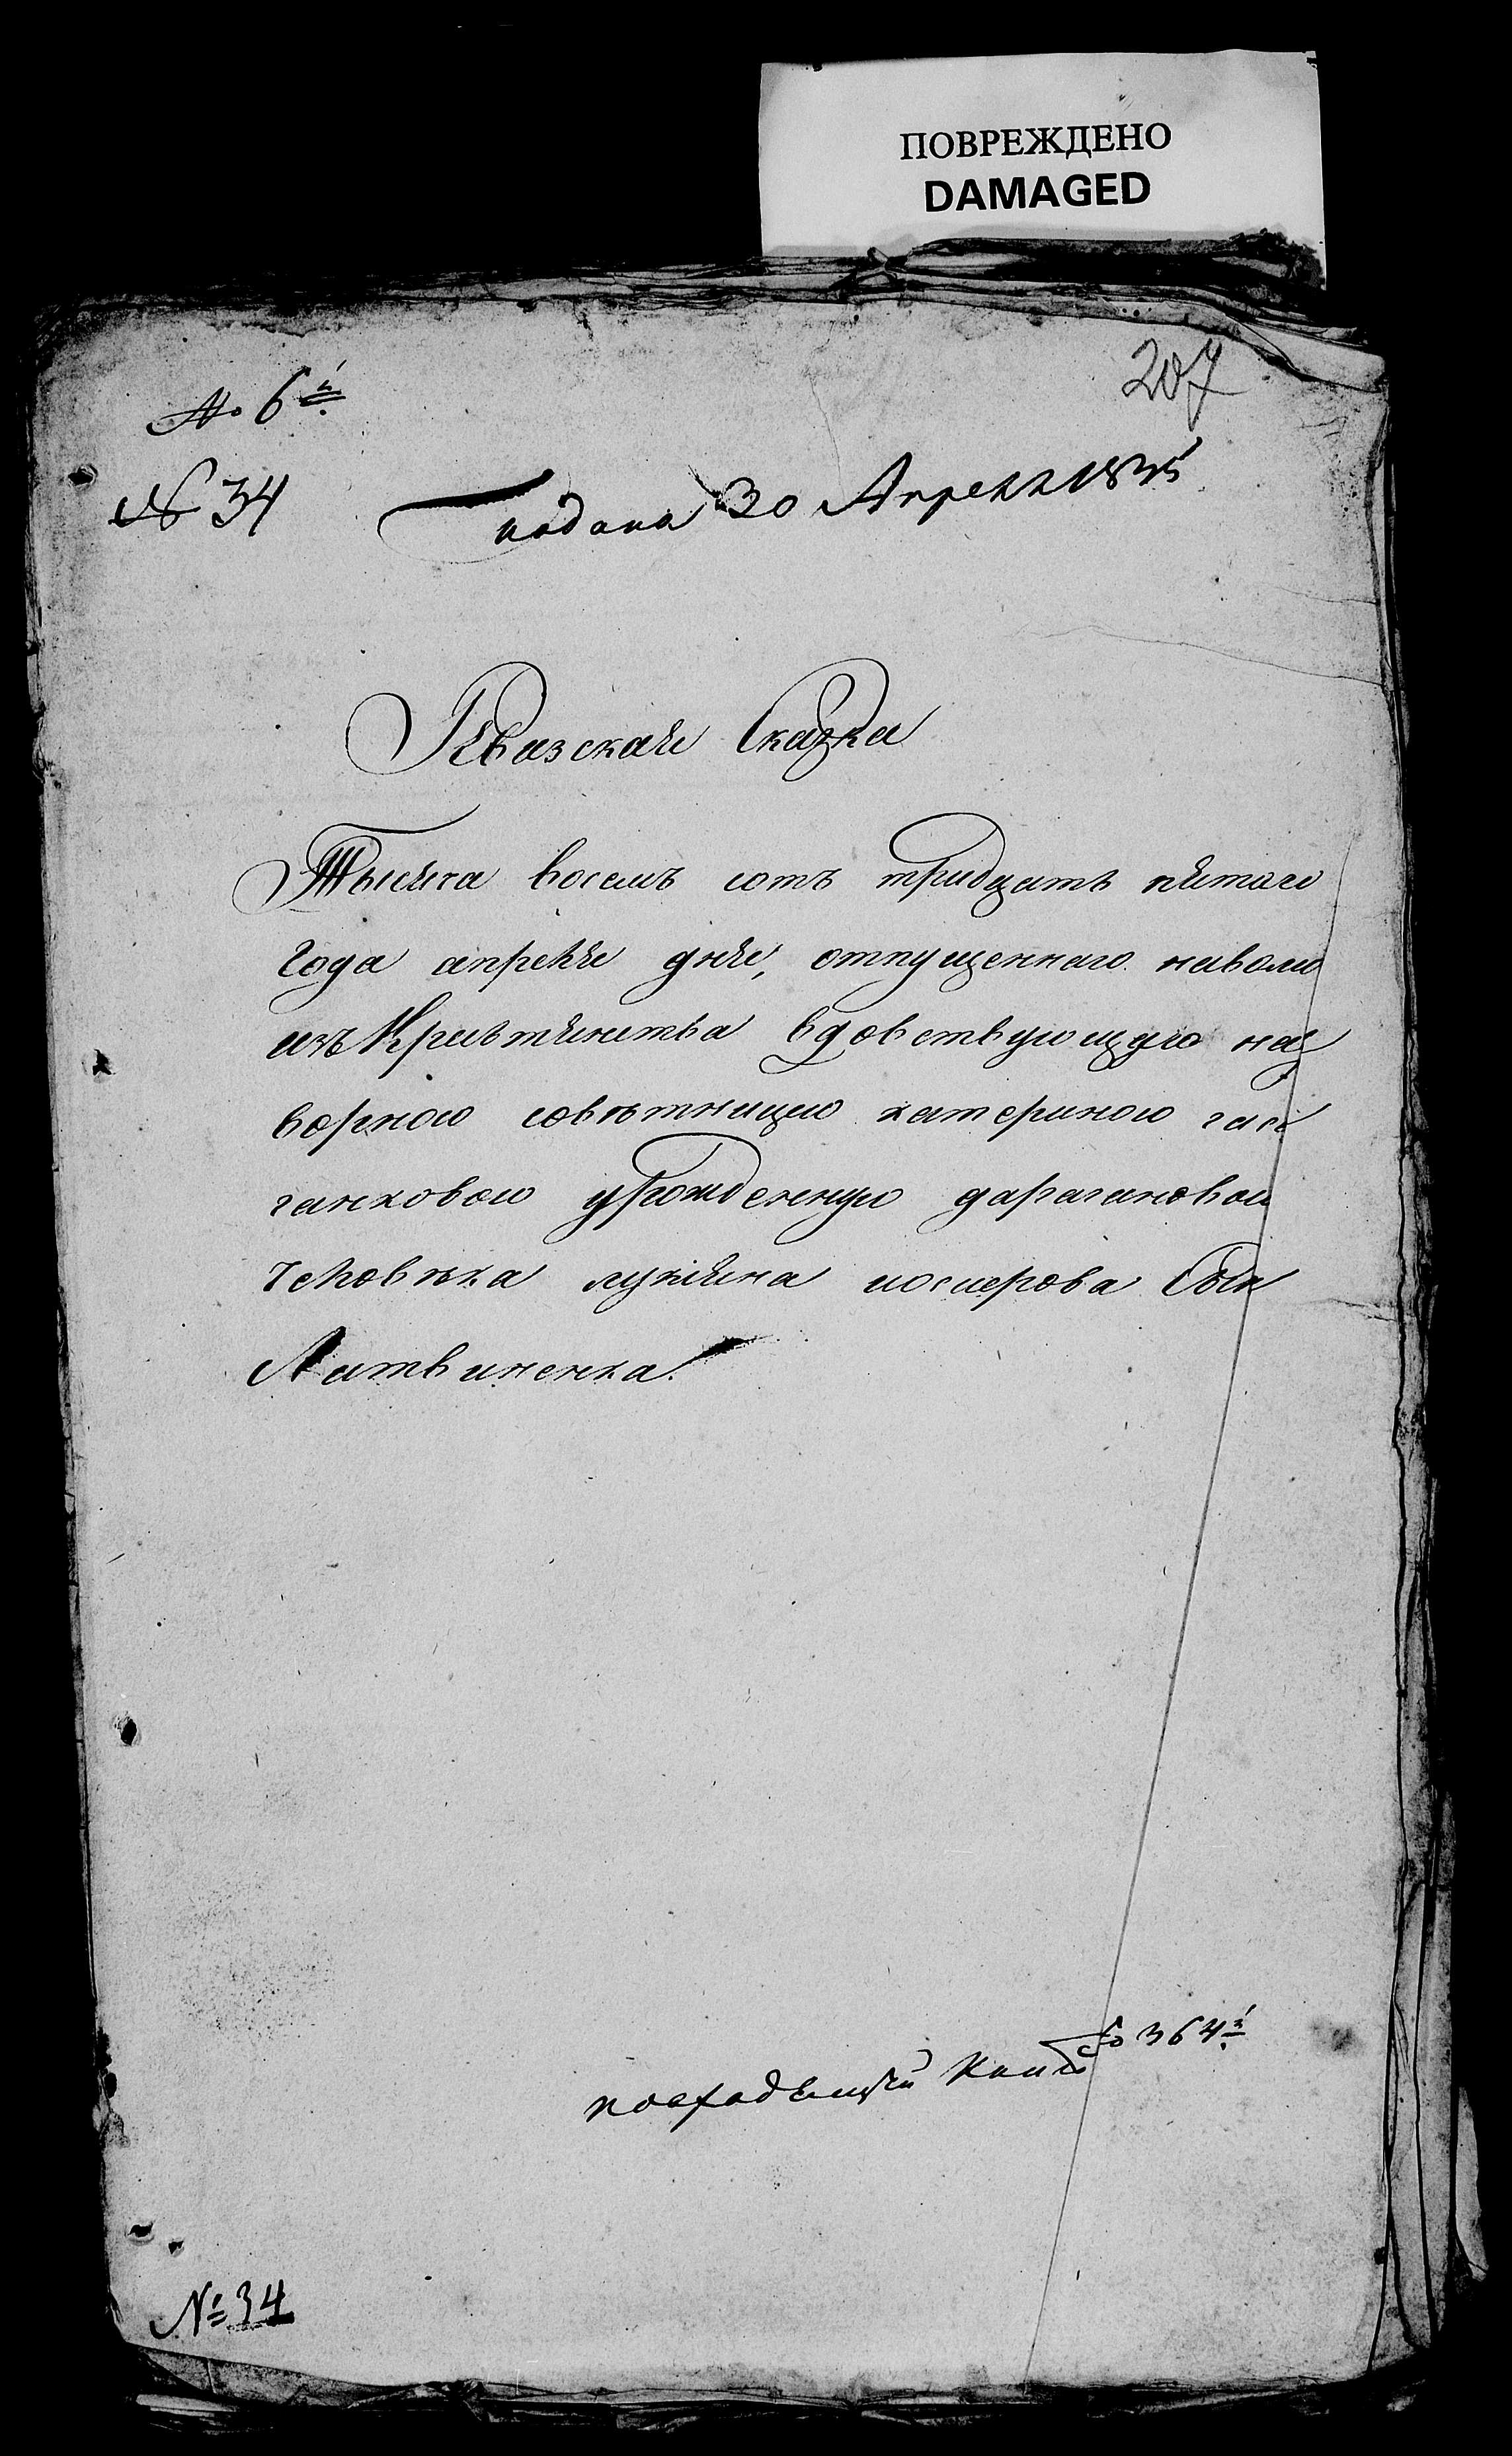 ПОВРЕЖДЕНО
DAMAGED
207
№ 6й
№ 34
Подана 30 Апреля 1835
Ревазская Сказка
Тысяча восемъ сотъ тридцать пятаго
Года апреля дня, отпущеннаго наволю
изъ Крестянства вдовствующую над
ворною совѣтницею катериною
ганховою урожденную дарагановою
человѣка лукяна иосиерова Сын
Литвиненка.
364й
№ 34